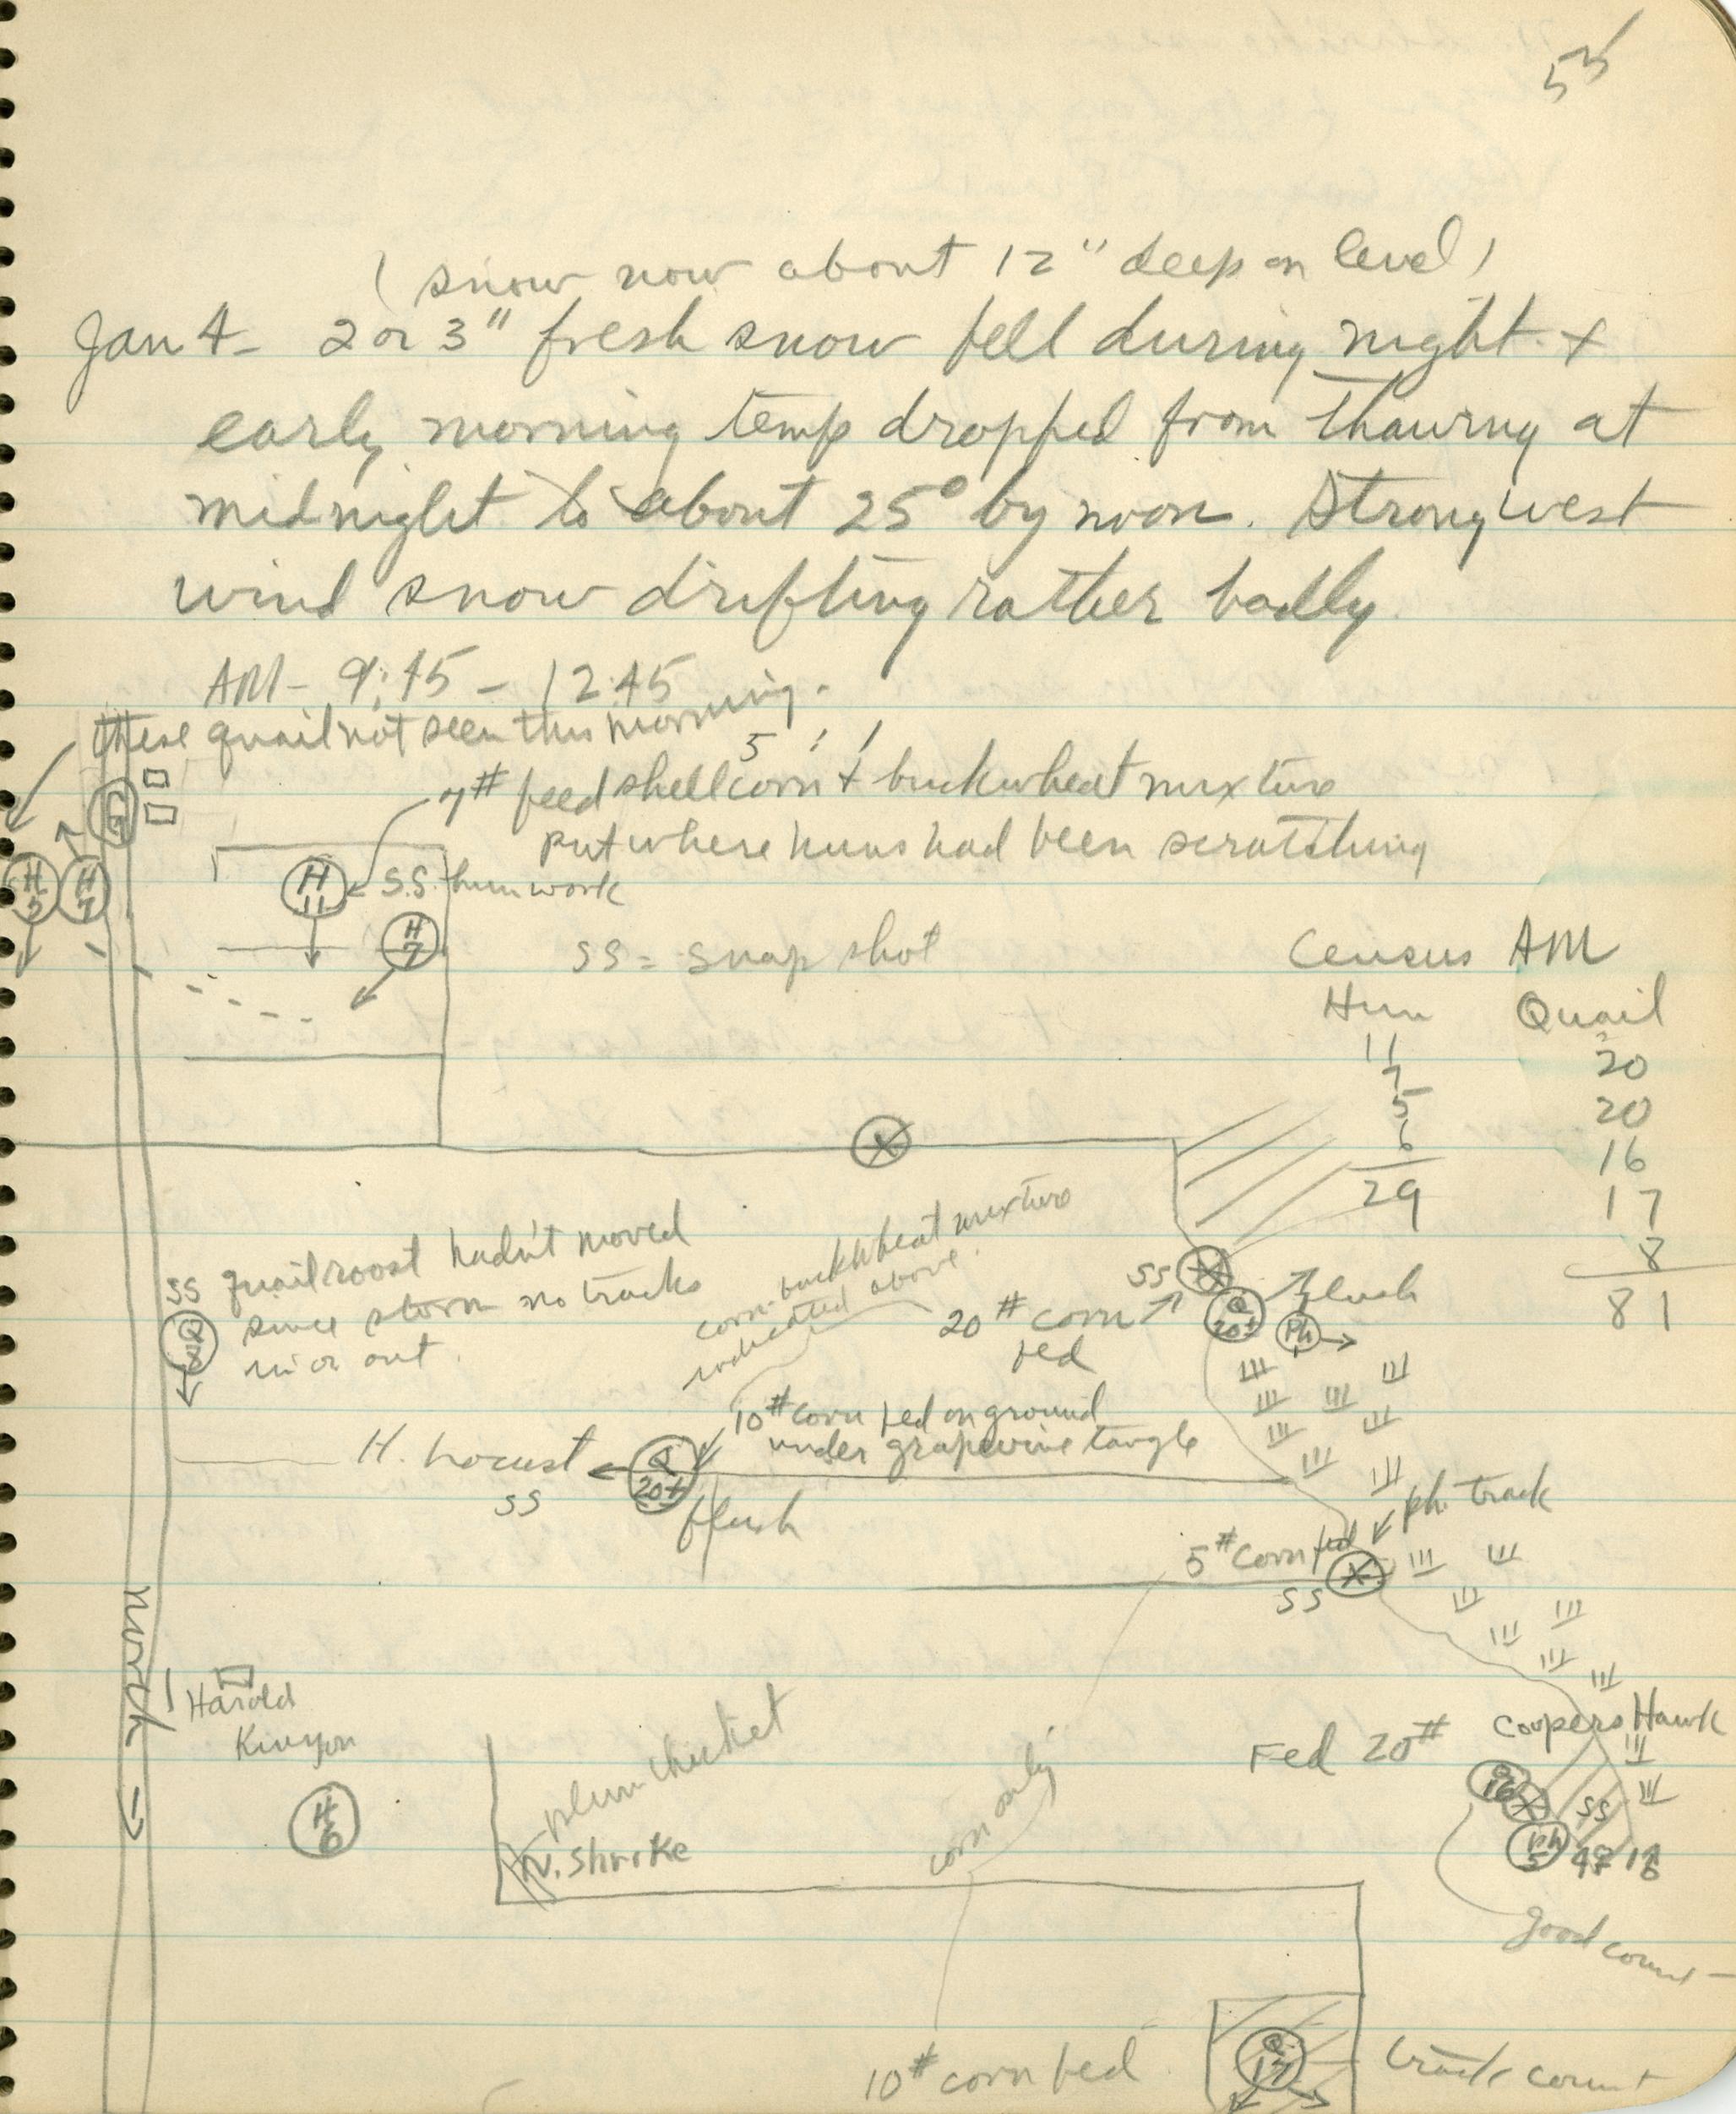 53
( snow now about 12" deep on level )
Jan 4 - 2 or 3" fresh snow fell during night +
early morning temp dropped from thawing at
midnight to about 25° by noon. Strong west
wind snow drifting rather badly.
AM - 9:45 - 12:45
these quail not seen this morning.
7# feed shell corn + buckwheat mixture
put where huns had been scratching
H
11
S.S. hun work
H
7
H
5
H
7
SS = snap shot
Census AM
Hun Quail
11 20
7 20
5 16
6 17
29 8
81
SS quail roost hadn't moved
since storm no tracks
in or out.
corn-buckwheat mixture
indicated above.
SS
20# corn
fed
Q
20+
flush
Ph
1
10# corn fed on ground
under grapevine tangle
H. Locust
SS
Q
20+
flush
ph. track
5# corn fed
SS
North →
Harold
Kinyon
H
6
plum thicket
N. Shrike
corn only
Fed 20#
Coopers Hawk
Q
16
SS
Ph
5
good count
10# corn fed
Q
17
track count